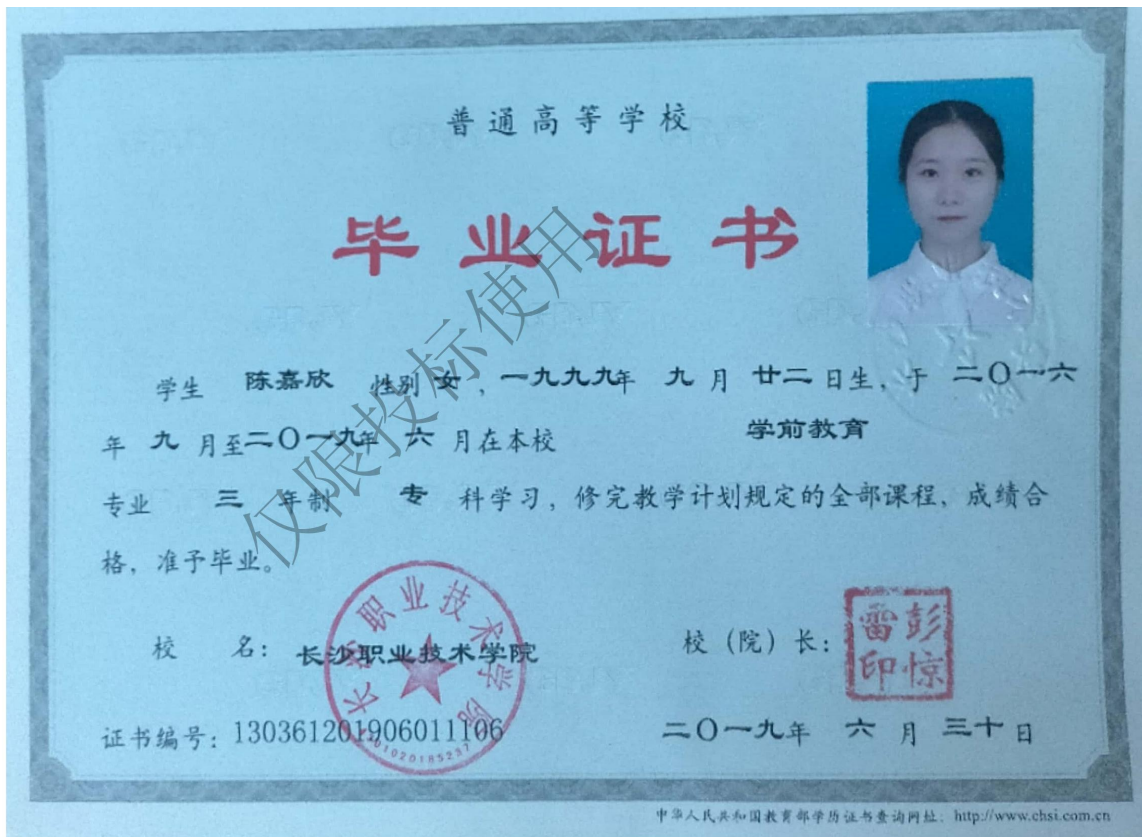 普通高等学校
毕业证书
学生 陈嘉欣 性别 女，一九九九年 九 月 廿二 日生，于 二〇一六
年 九 月至二〇一九年 六 月在本校 学前教育
专业 三 年制 专 科学习，修完教学计划规定的全部课程，成绩合
格，准予毕业。
校 名：长沙职业技术学院
校（院）长：
彭惊雷印
证书编号：130361201906011106
二〇一九年 六 月 三十 日
长沙职业技术学院
仅限投标使用
中华人民共和国教育部学历证书查询网址：http://www.chsi.com.cn